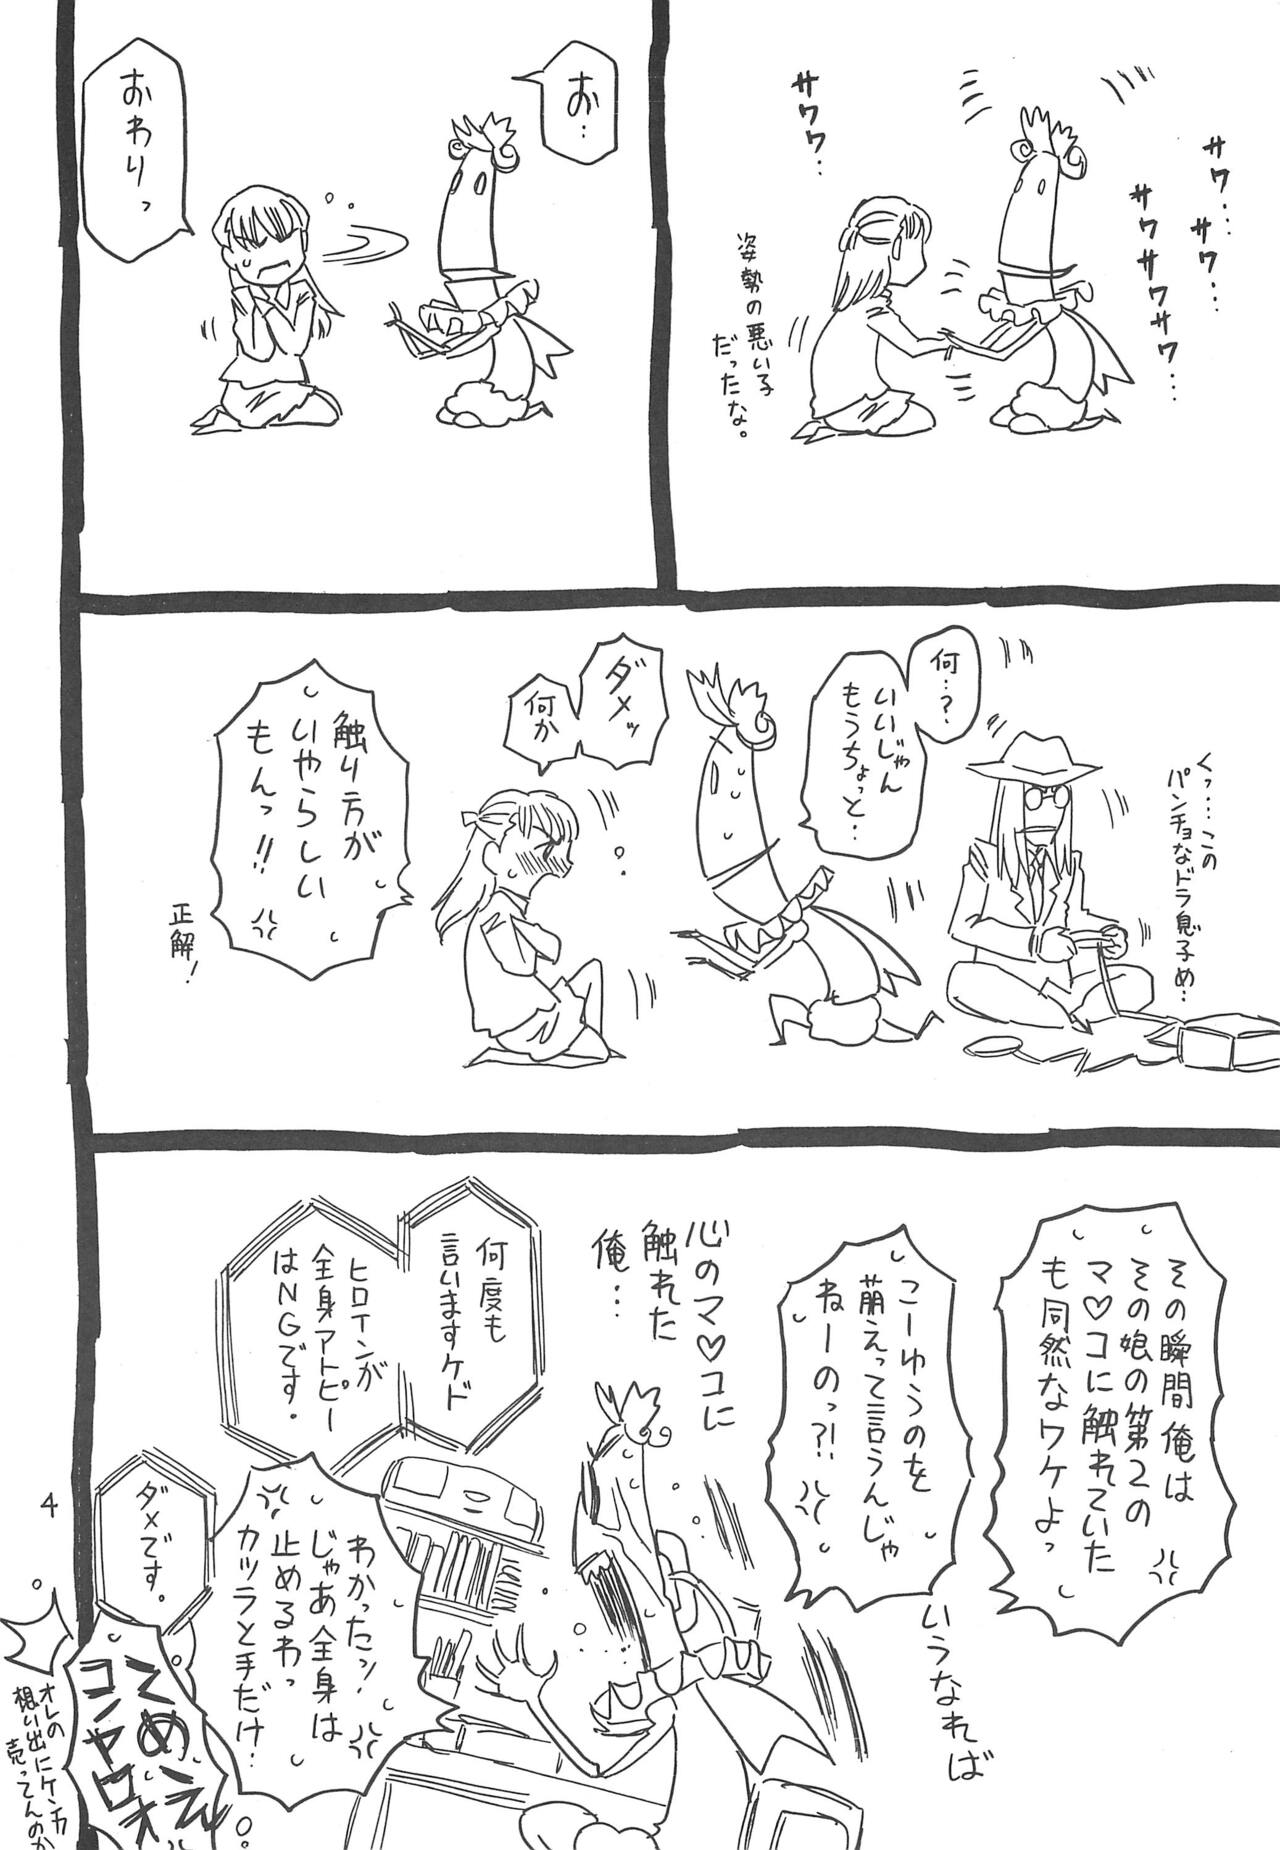 サワ…
サワ…
サワサワサワ…
サワワ…
姿勢の悪い子
だったな。
お…
おわりっ
くっ…この
パンチョなドラ息子め…
何…?
いいじゃん
もうちょっと…
ダメッ
何か
触り方が
いやらしい
もんっ!!
正解!
その瞬間俺は
その娘の第2の
マ♡コに触れていた
も同然なワケよっ
こーゆうのを
萌えって言うんじゃ
ねーのっ?!
いうなれば
心のマ♡コに
触れた
俺…
何度も
言いますケド
ヒロインが
全身アトピー
はNGです.
わかったッ!
じゃあ全身は
止めるわっ
カツラと手だけ…
ダメです.
てめェ
コンヤロオ
オレの
想い出にケンカ
売ってんのか
4